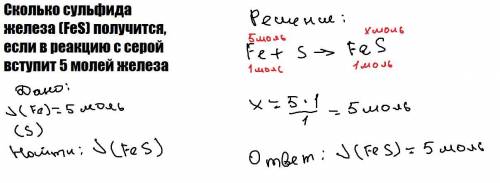 Сколько сульфида
железа (FeS) получится,
если в реакцию с серой
вступит 5 молей железа
Дано:
ν(Fe)=5 моль
(S)
Найти: ν(FeS)
Решение:
5 моль x моль
Fe + S → FeS
1 моль 1 моль
x = 5·1/1 = 5 моль
Ответ: ν(FeS) = 5 моль